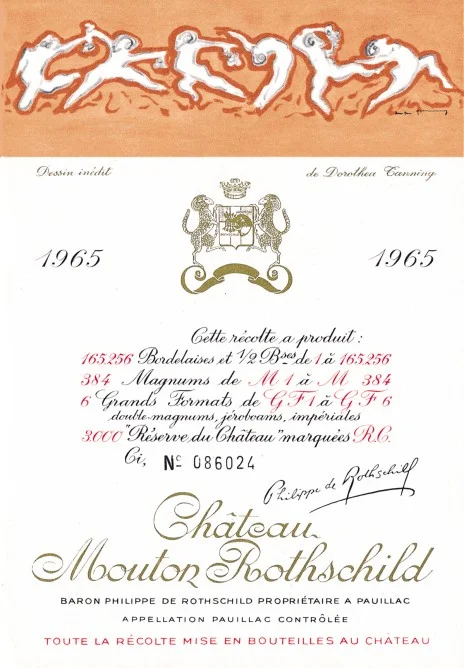 Dessin inédit de Dorothea Tanning
1965 1965
Cette récolte a produit :
165.256 Bordelaises et 1/2 Bses de 1 à 165.256
384 Magnums de M 1 à M 384
6 Grands Formats de G F 1 à G F 6
double-magnums, jéroboams, impériales
3.000 "Réserve du Château" marquées R.C.
Ci, Nº 086024
Philippe de Rothschild
Château
Mouton Rothschild
BARON PHILIPPE DE ROTHSCHILD PROPRIÉTAIRE A PAUILLAC
APPELLATION PAUILLAC CONTRÔLÉE
TOUTE LA RÉCOLTE MISE EN BOUTEILLES AU CHÂTEAU